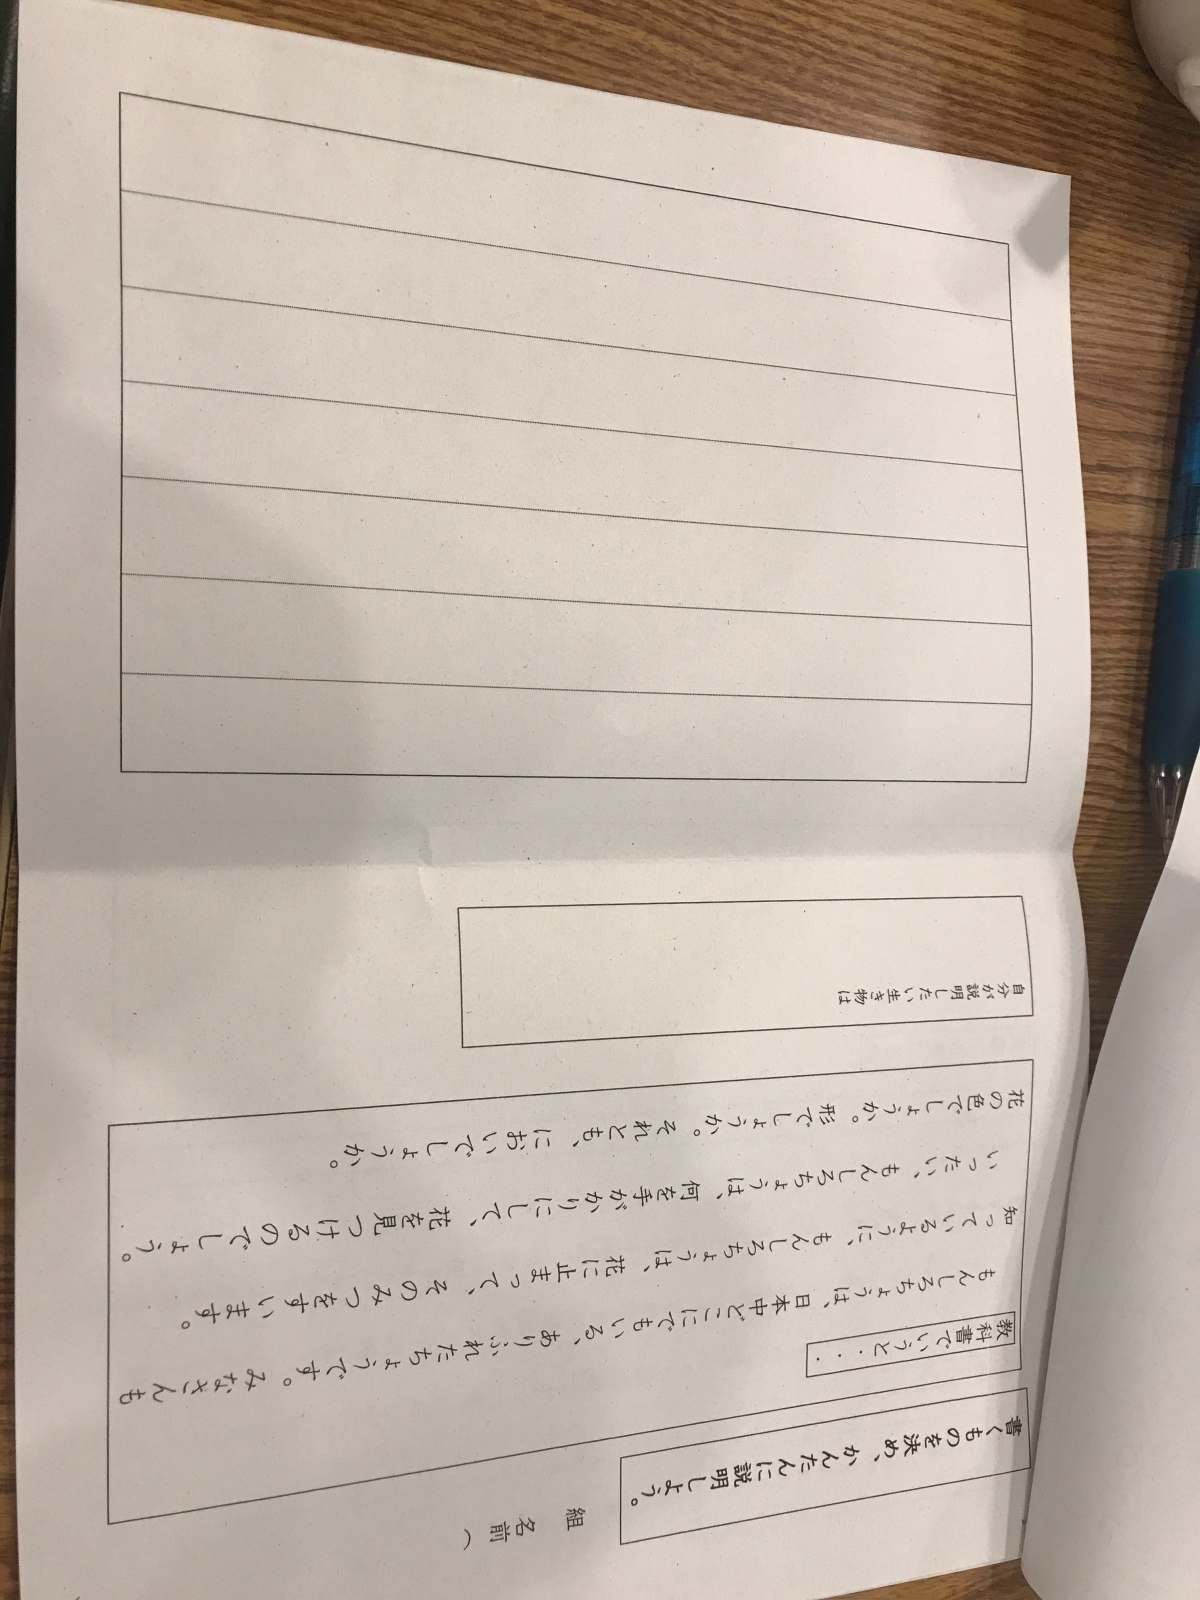 書くものを決め、かんたんに説明しよう。
組　名前（
教科書でいうと・・・
もんしろちょうは、日本中どこにでもいる、ありふれたちょうです。みなさんも
知っているように、もんしろちょうは、花に止まって、そのみつをすいます。
いったい、もんしろちょうは、何を手がかりにして、花を見つけるのでしょう。
花の色でしょうか。形でしょうか。それとも、においでしょうか。
自分が説明したい生き物は